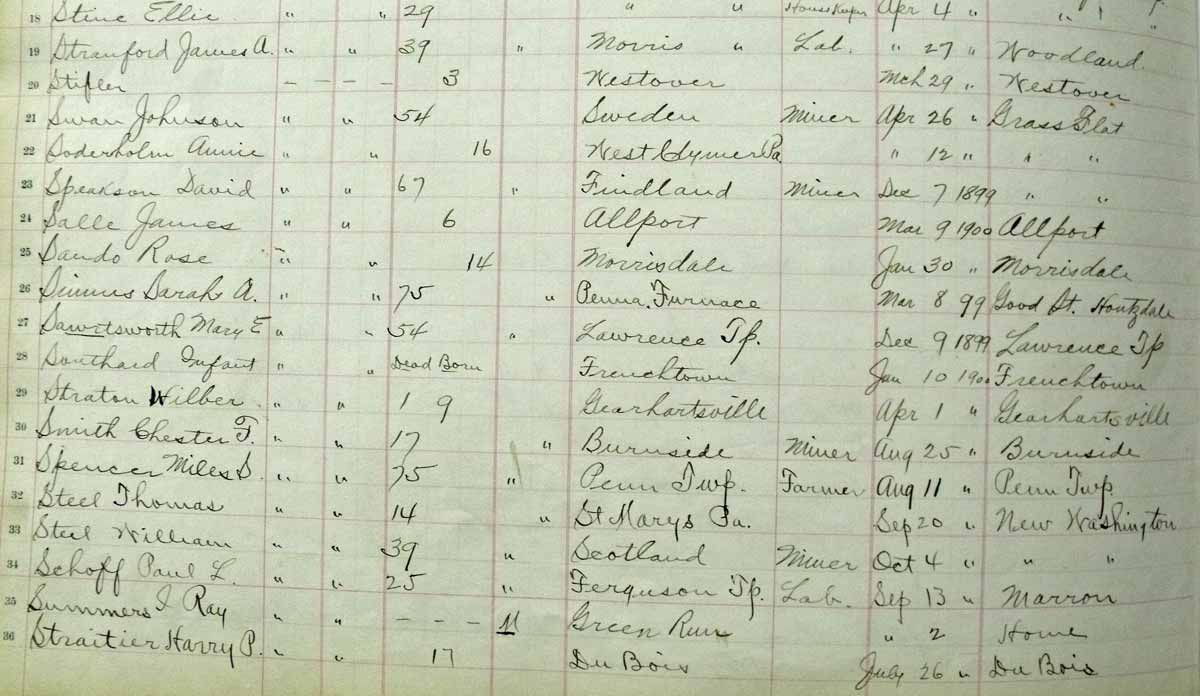 18 Stine Ellie " " 29 " " House Keeper Apr 4 " " "
19 Stranford James A. " " 39 " Morris " Lab. " 27 " Woodland
20 Stifler - - - - 3 Westover Mch 29 " Westover
21 Swan Johnson " " 54 Sweden Miner Apr 26 " Grass Flat
22 Soderholm Annie " " 16 West Clymer Pa. " 12 " " "
23 Speakson David " " 67 " Findland Miner Dec 7 1899 " "
24 Salle James " " 6 Allport Mar 9 1900 Allport
25 Sando Rose " " 14 Morrisdale Jan 30 " Morrisdale
26 Simms Sarah A. " " 75 " Penna. Furnace Mar 8 99 Good St. Houtzdale
27 Sawrtsworth Mary E " " 54 " Lawrence Tp. Dec 9 1899 Lawrence Tp
28 Southard Infant " " Dead Born Frenchtown Jan 10 1900 Frenchtown
29 Straton Wilber " " 1 9 Gearhartsville Apr 1 " Gearhartsville
30 Smith Chester F. " " 17 " Burnside Miner Aug 25 " Burnside
31 Spencer Miles S. " " 75 " Penn Twp. Farmer Aug 11 " Penn Twp
32 Steel Thomas " " 14 " St Marys Pa. Sep 20 " New Washington
33 Steel William " " 39 " Scotland Miner Oct 4 " " "
34 Schoff Paul L. " " 25 " Ferguson Tp. Lab. Sep 13 " Marron
35 Summers I Ray " " - - - 11 Green Run " 2 Home
36 Straitier Harry P. " " 17 Du Bois July 26 " Du Bois